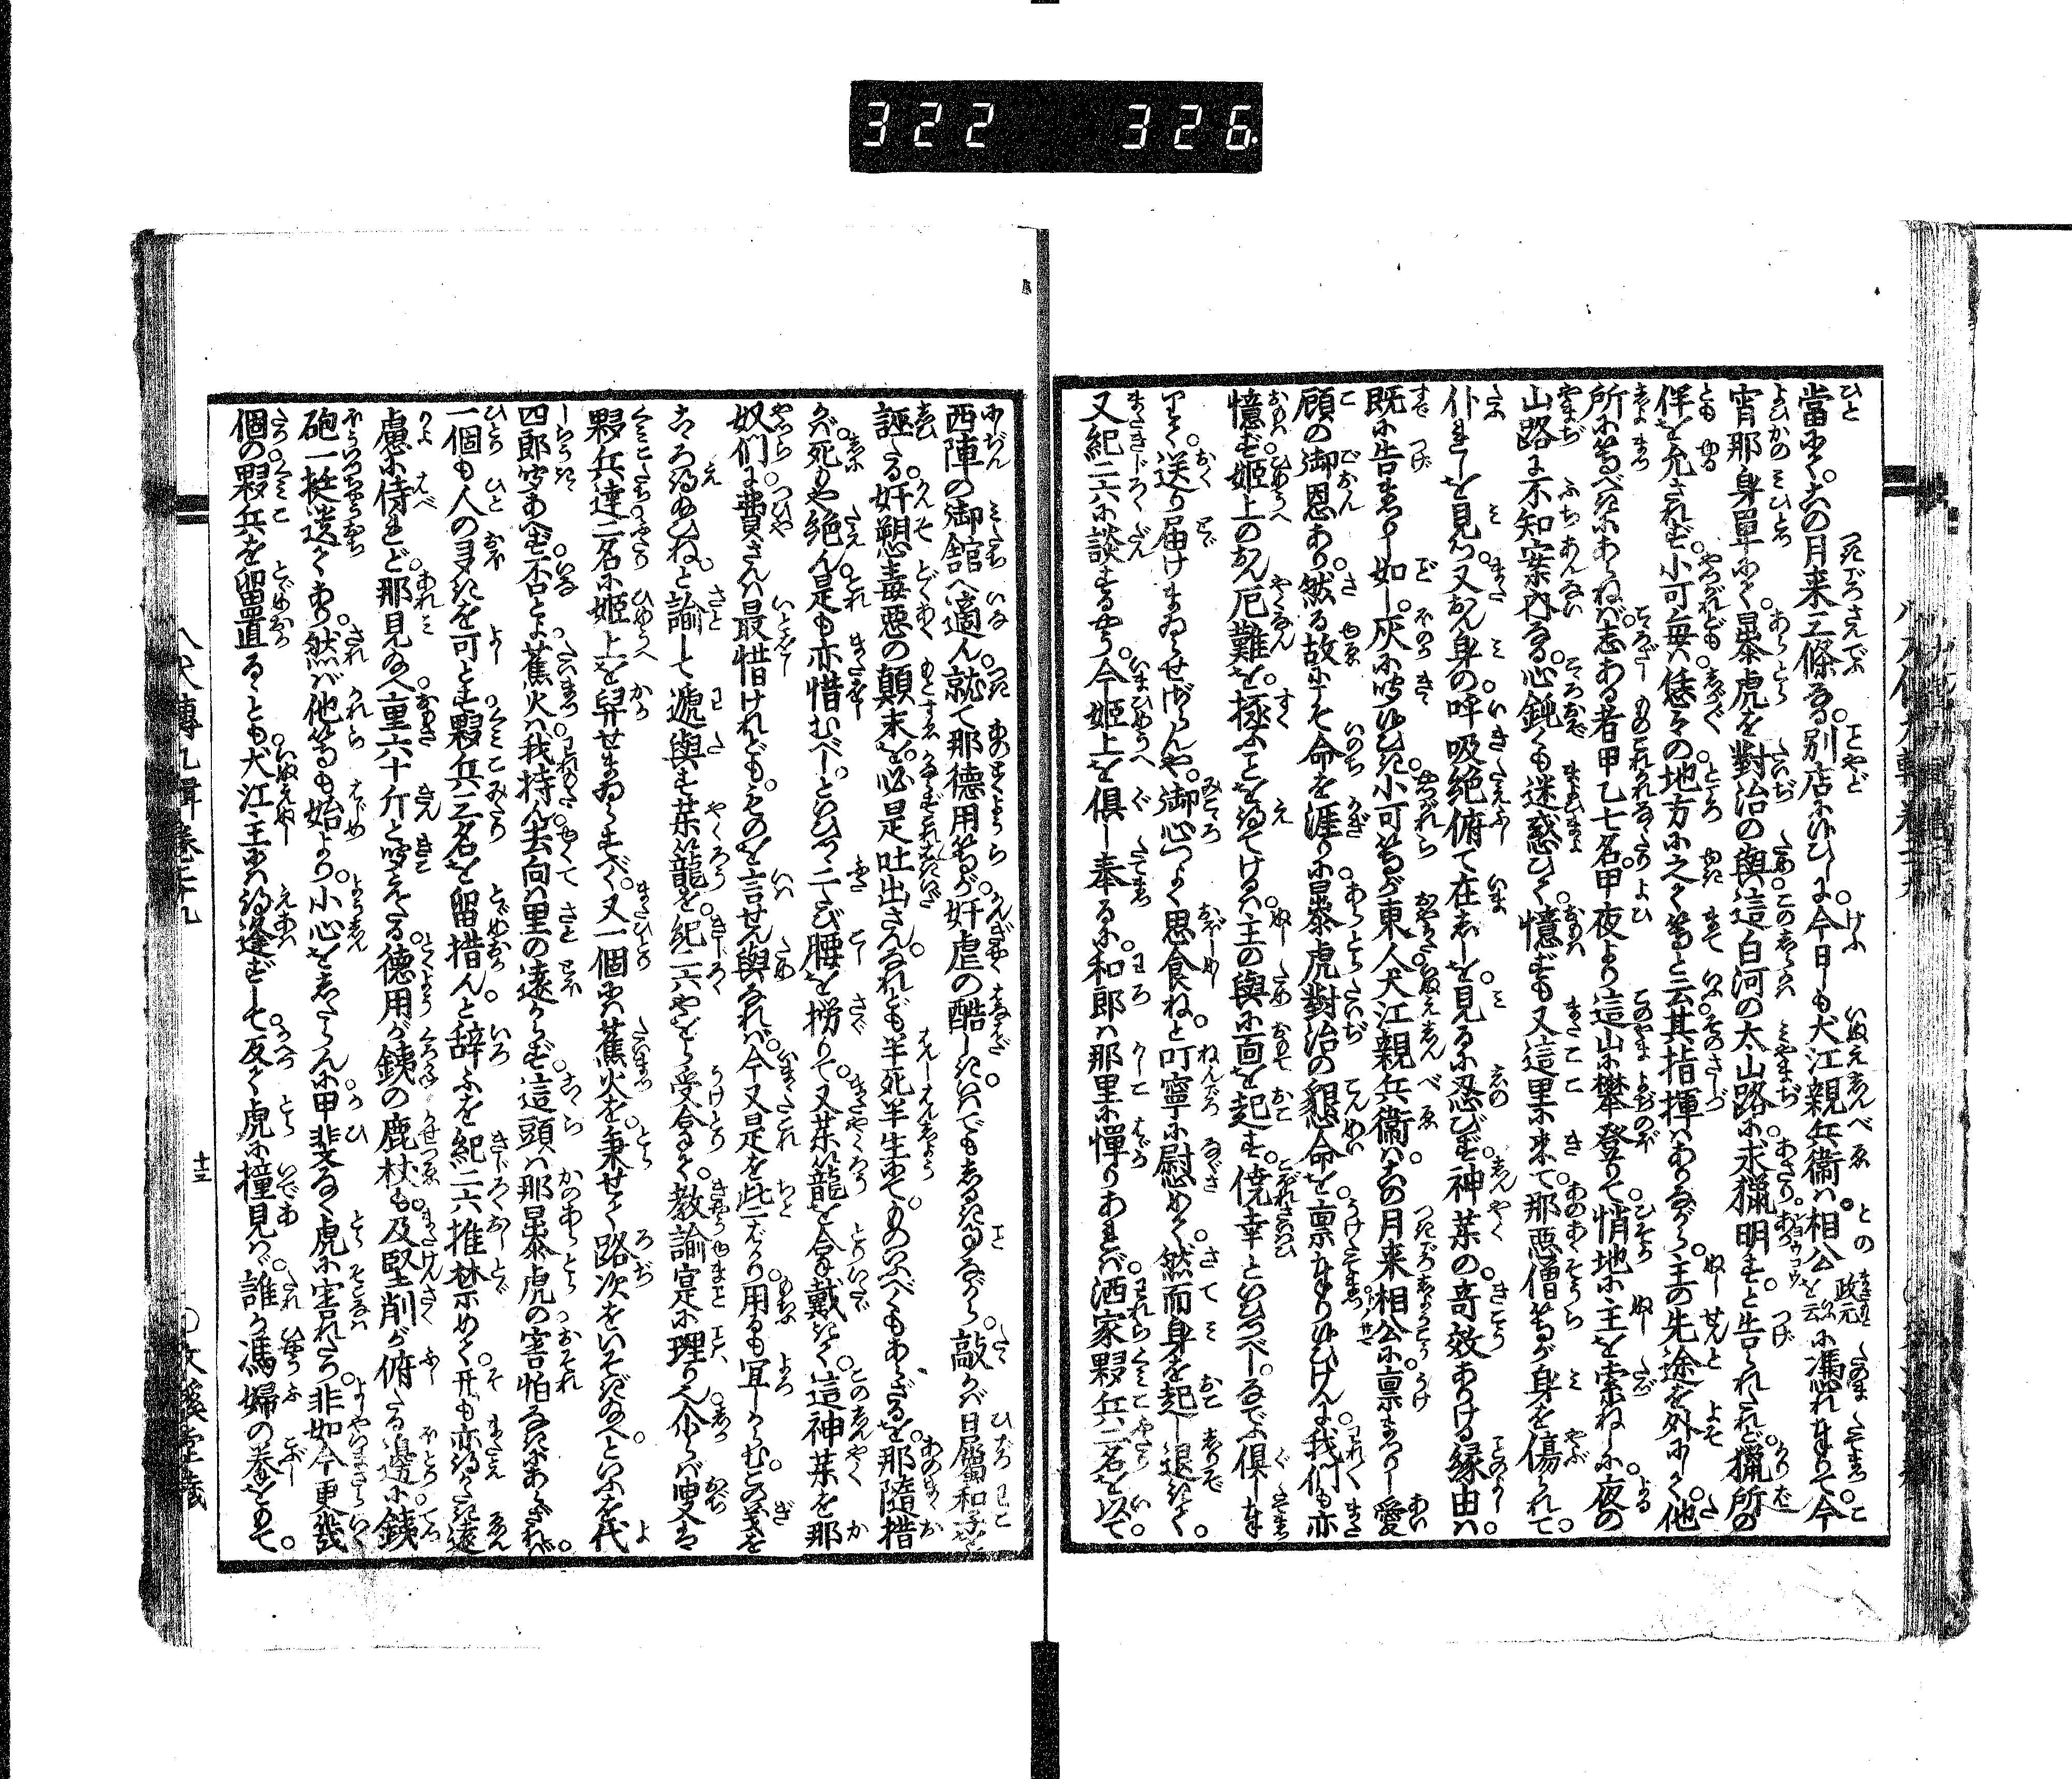 322 326
當にて。去の月来三條なる。別店にゆひしに今日しも犬江親兵衛は。相公政元に馮れまゐりて。今
宵那身單にて。暴虎を對治の與。這白河の太山路に求獵。明すと告られたれど。獵所の
伴を允されず。小可毎は恁々の地方にゆきて等と云其指揮はありながら。主の先途を外にして。他
所に等べきにあらねば。志ある者甲乙七名。甲夜より這山に攀登りて。悄地に主を索ねしに。夜の
山路に不知案内なる。心鈍くも迷惑ひて。憶ずも又這里に来て。那悪僧等が身を傷られて
仆れしを見つ。又おん身の呼吸絶俯て在せしを。見るに忍びず。神薬の奇效ありける縁由は。
既に告まゐりし如し。灰に聞ゆひき。小可等が東人犬江親兵衛は。去の月来相公に。稟まつりし愛
顧の御恩あり。然る故にこそ命を涯りに。暴虎對治の懇命を。稟まゐりゆひけんに。我們も亦
憶ず。姫上のおん厄難を。極ふことを得てけるは。主の與に面を起す。僥幸といひつべし。なでふ倶しまゐ
らして。送り届けまゐらせざらんや。御心つよく思食ねと。叮寧に慰めて。然而身を起し退きて。
又紀二六に談ずるやう。今姫上を倶し奉るに。和郎は那里に憚りあれば。洒家夥兵二名を以て。
西陣の御館へ適ん。就て那徳用等が。奸虐の酷しきは。いでもしるきことながら。敲かば日属和子を
誣たる。奸愬毒悪の顛末を。必是吐出さんなれども。半死半生にて。ものいふべくもあらざるを。那隨措
かば。死もや絶ん。是も亦惜むべし。といひつゝ二たび腰を拐りて。又薬籠を拿戴きて。這神薬を。那
奴們に費さんは。最惜けれども。ものを言せん與なれば。今又是を些ばかり。用るも宜しからむ。この義を
こゝろ得ゆひね。と諭して遞與す薬籠を。紀二六やをら受合りて。教諭寔に理りへ。尒らば叟は
夥兵達二名に。姫上を舁せまゐらすべし。又一個は蕉火を秉せて。路次をいそぎゆへといふを。代
四郎聞あへず。否とよ蕉火は我持ん。去向は里の遠からず。這頭は那暴虎の害怕るきにあらざれば。
一個も人の多きを可とす。夥兵三名を留措んと辞ふを紀二六推禁めて。开も亦得がたき遠
慮に侍れど。那見ゆへ。重六十斤と聞えたる。徳用が鉄の鹿杖も。及堅削が俯たる邊に。鉄
砲一挺遺てあり。然ば他等も始より。小心をしたらんに。甲斐なく虎に害れたり。非如今更幾
個の夥兵を留置るゝとも。犬江主には得逢ずして。反て虎に撞見ば。誰か馮婦の拳をもて。
八犬傳九輯巻三十九
十三